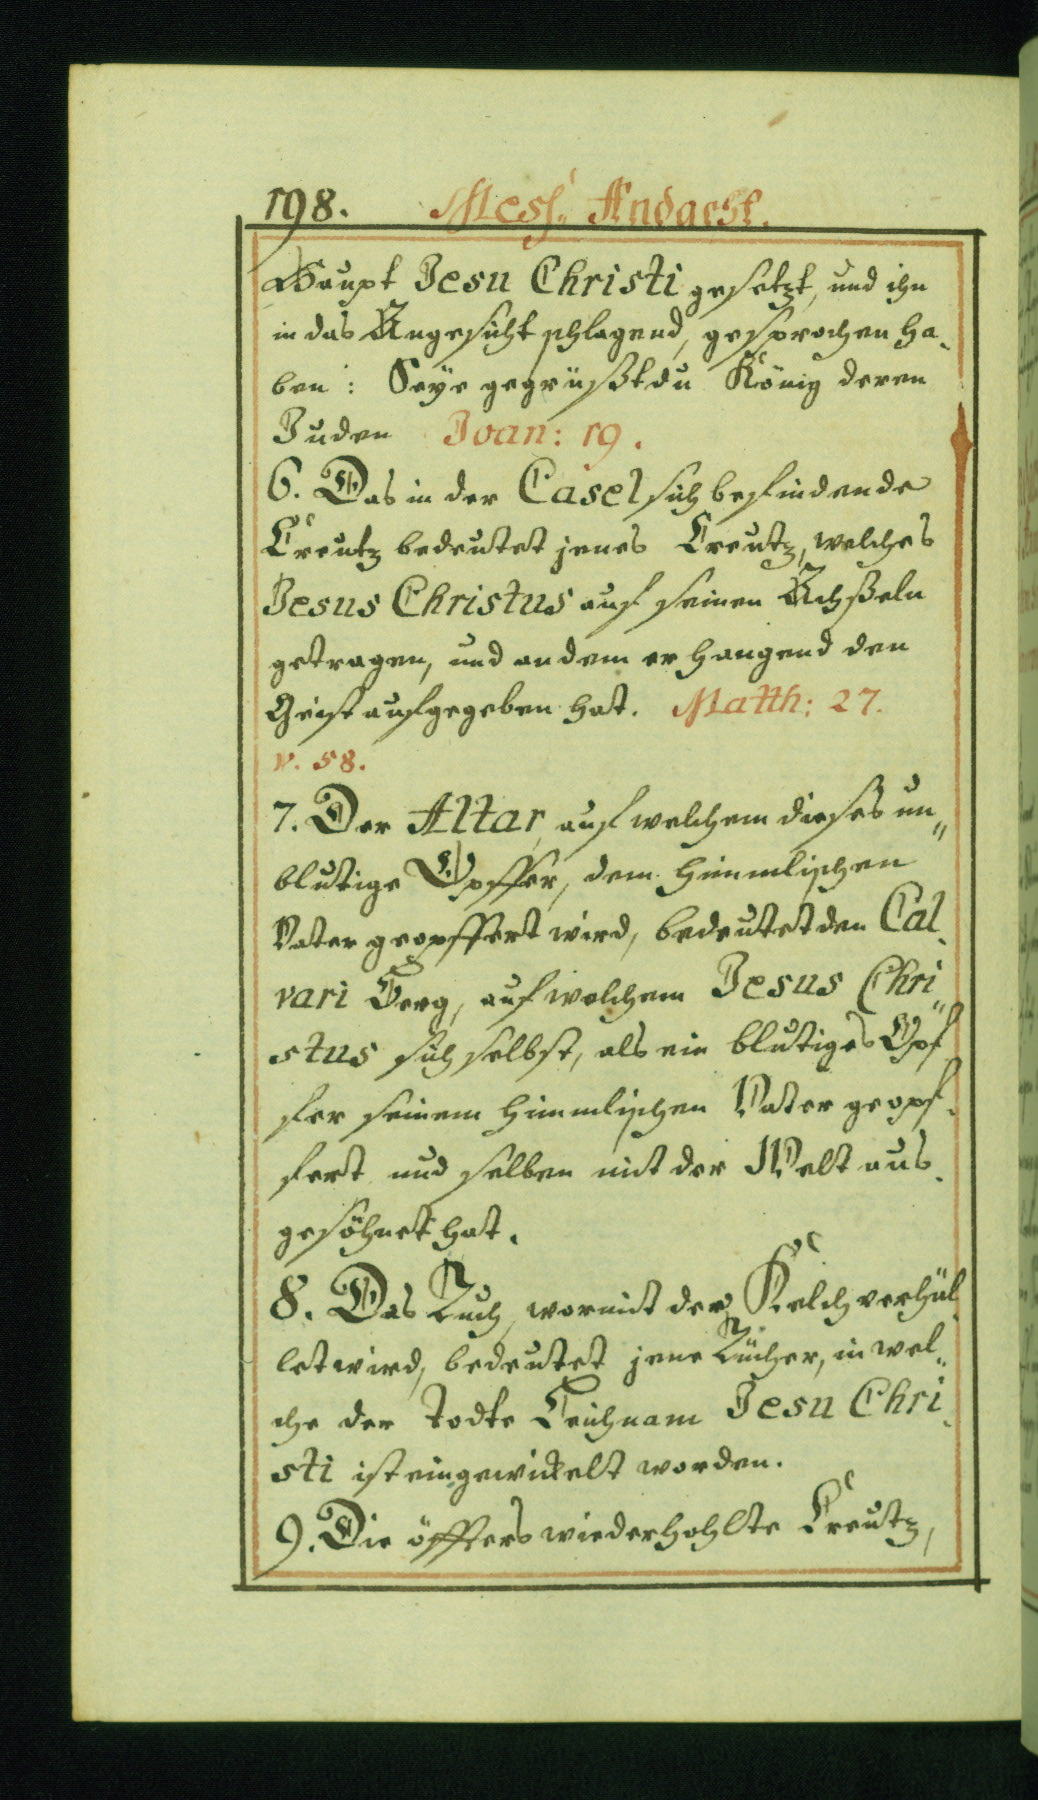 198. Mess„ Andacht.
Haupt Jesu Christi gesetzt, und ihn
in das Angesicht schlagend, gesprochen ha„
ben: Seye gegrüßt du König deren
Juden Joan: 19.
6. Das in der Casel sich befindende
Creutz bedeutet jenes Creutz, welches
Jesus Christus auf seinen Achßeln
getragen, und an dem er hangend den
Geist aufgegeben hat. Matth: 27.
v. 58.
7. Der Altar, auf welchem dieses un„
blutige Opffer, dem himmlischen
Vater geopffert wird, bedeutet den Cal„
vari Berg, auf welchem Jesus Chri„
stus sich selbst, als ein blutiges Opf„
fer seinem himmlischen Vater geopf„
fert und selben mit der Welt aus„
gesöhnet hat.
8. Das Tuch, wormit der Kelch verhül„
let wird, bedeutet jene Tücher, in wel„
che der todte Leichnam Jesu Chri„
sti ist eingewickelt worden.
9. Die öffters wiederhohlte Creutz,